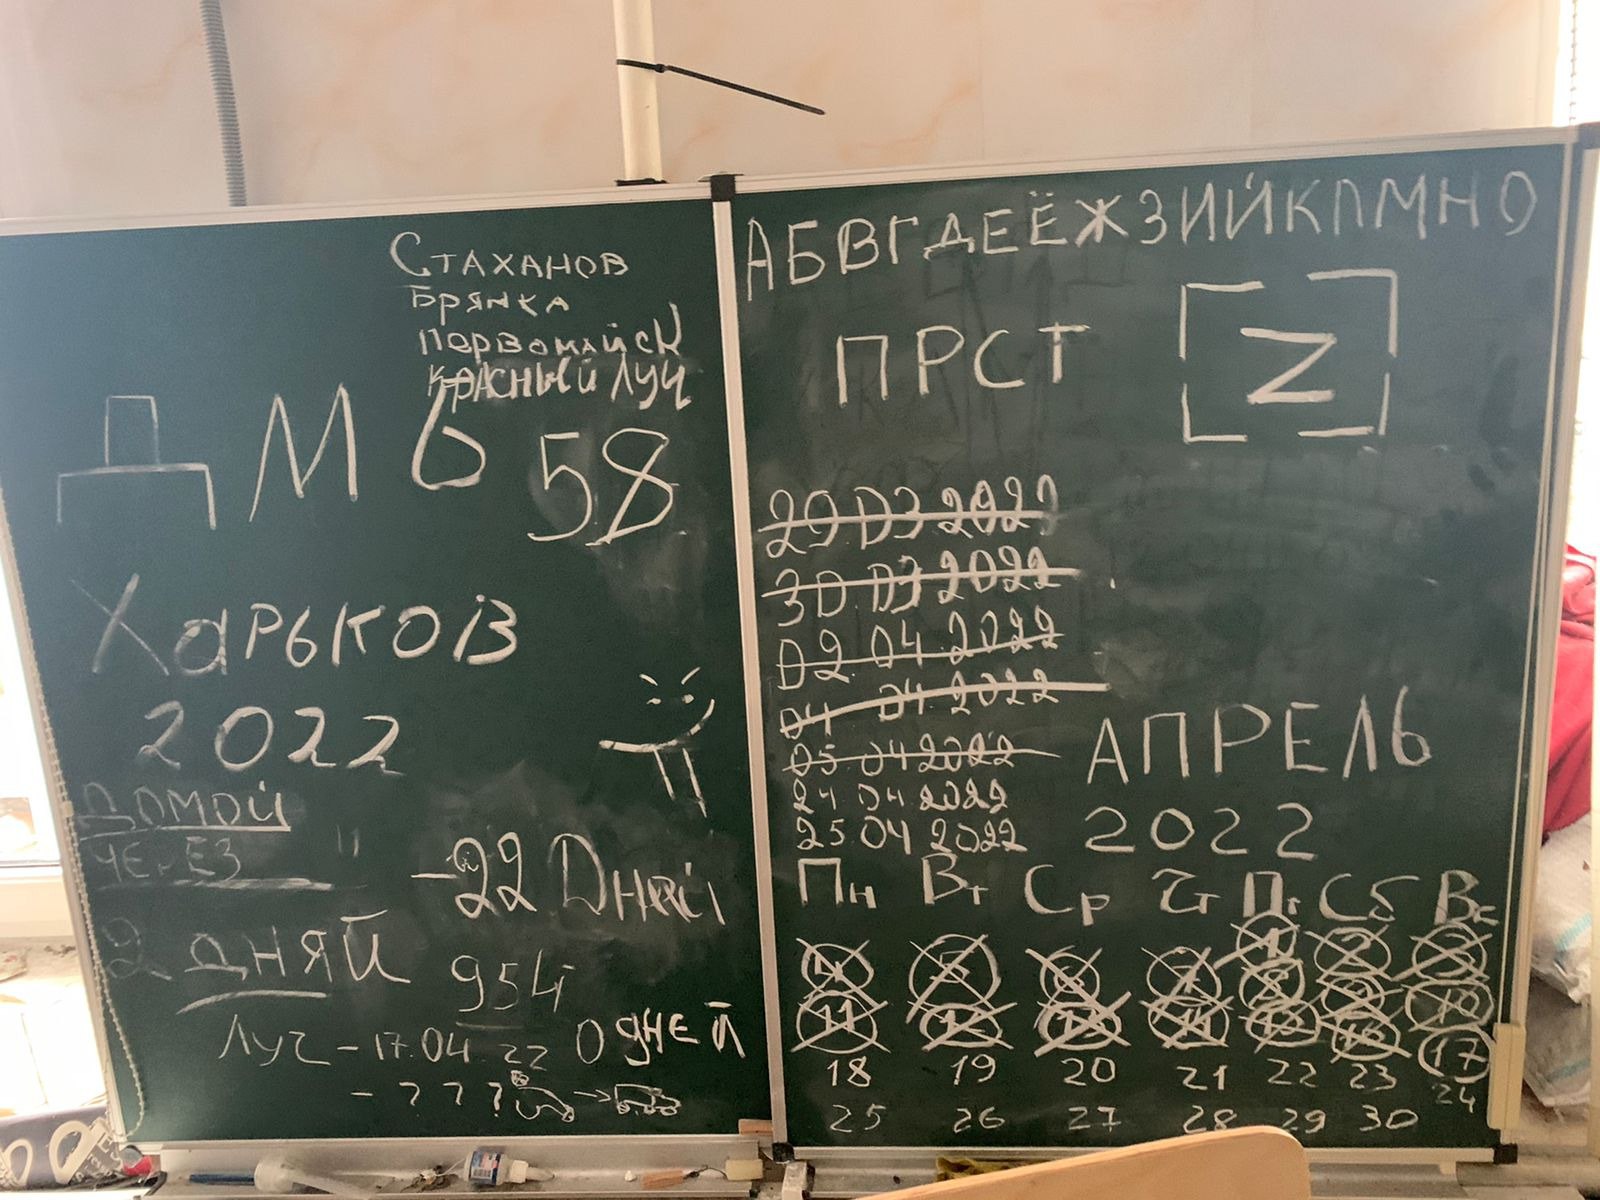 Стаханов
Брянка
Первомайск
Красный луч
ДМБ 58
Харьков
2022
ДОМОЙ
ЧЕРЕЗ "
2 ДНЯЙ
-22 Дней
954
Луч - 17.04.22 0 дней
- ? ? ?
АБВГДЕЁЖЗИЙКЛМНО
ПРСТ
Z
29 03 2022
30 03 2022
02 04 2022
04 04 2022
05 04 2022
24 04 2022
25 04 2022
АПРЕЛЬ
2022
Пн Вт Ср Чт Пт Сб Вс
1 2 3
5 6 7 8 10
11 12 13 14 15 16 17
18 19 20 21 22 23 24
25 26 27 28 29 30